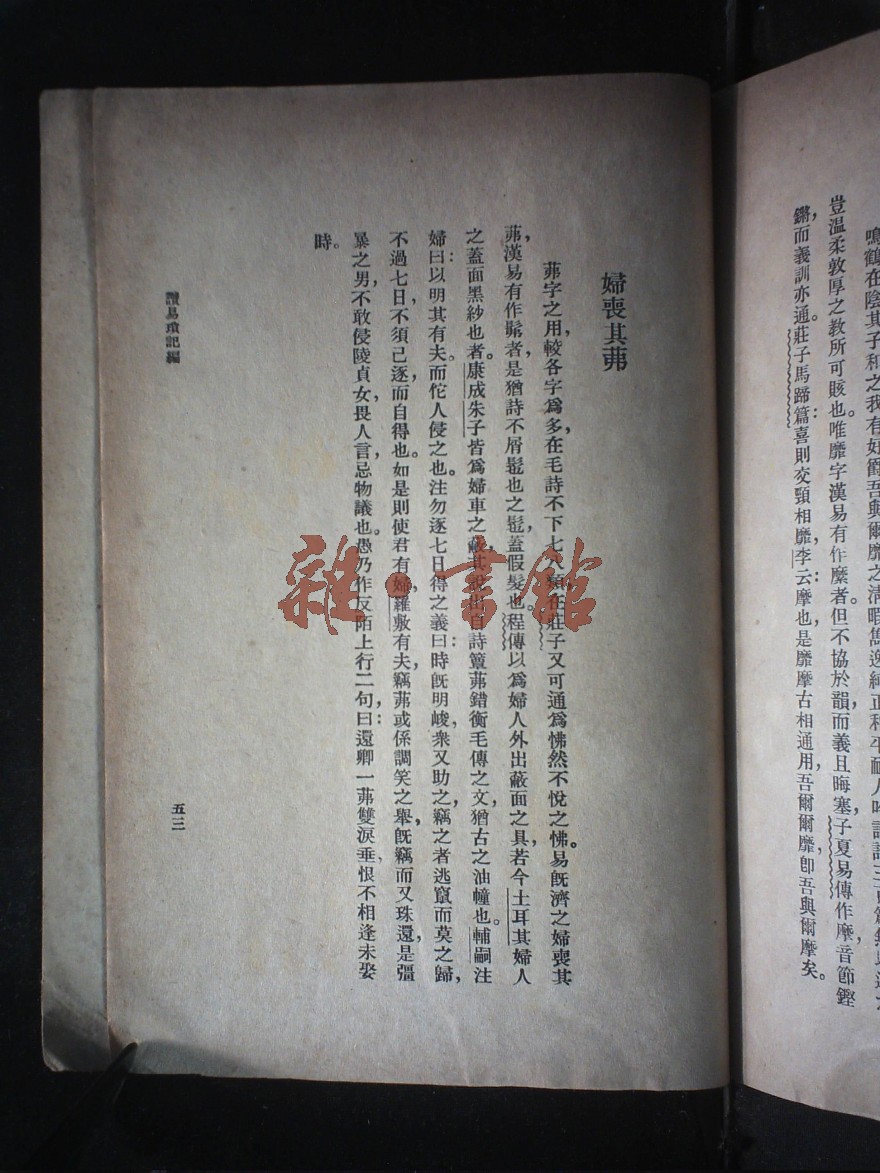 鳴鶴在陰其子和之我有好爵吾與爾靡之清
豈温柔敦厚之教所可賅也。唯靡字漢易有作縻者。但不協於韻，而義且晦塞，子夏易傳作摩，音節鏗
鏘，而義訓亦通。莊子馬蹄篇：喜則交頸相靡，李云：摩也。是靡摩古相通用，吾爾爾靡，即吾與爾摩矣。
婦喪其茀
茀字之用，較各字爲多，在毛詩不下七八類，在莊子又可通爲怫然不悅之怫。易旣濟之婦喪其
茀，漢易有作髴者，是猶詩不屑髢也之髢，蓋假髮也。程傳以爲婦人外出蔽面之具，若今土耳其婦人
之蓋面黑紗也者。康成朱子皆爲婦車之蔽，其說出自詩簟茀錯衡毛傳之文，猶古之油幢也。輔嗣注
婦曰：以明其有夫。而佗人侵之也。注勿逐七日得之義曰：時旣明峻，衆又助之，竊之者逃竄而莫之歸，
不過七日，不須己逐，而自得也。如是則使君有婦，羅敷有夫，竊茀或係調笑之舉，旣竊而又珠還，是彊
暴之男，不敢侵陵貞女，畏人言，忌物議也。愚乃作反陌上行二句，曰：還卿一茀雙淚垂，恨不相逢未娶
時。
讀易瓆記編
五三
雜·書館